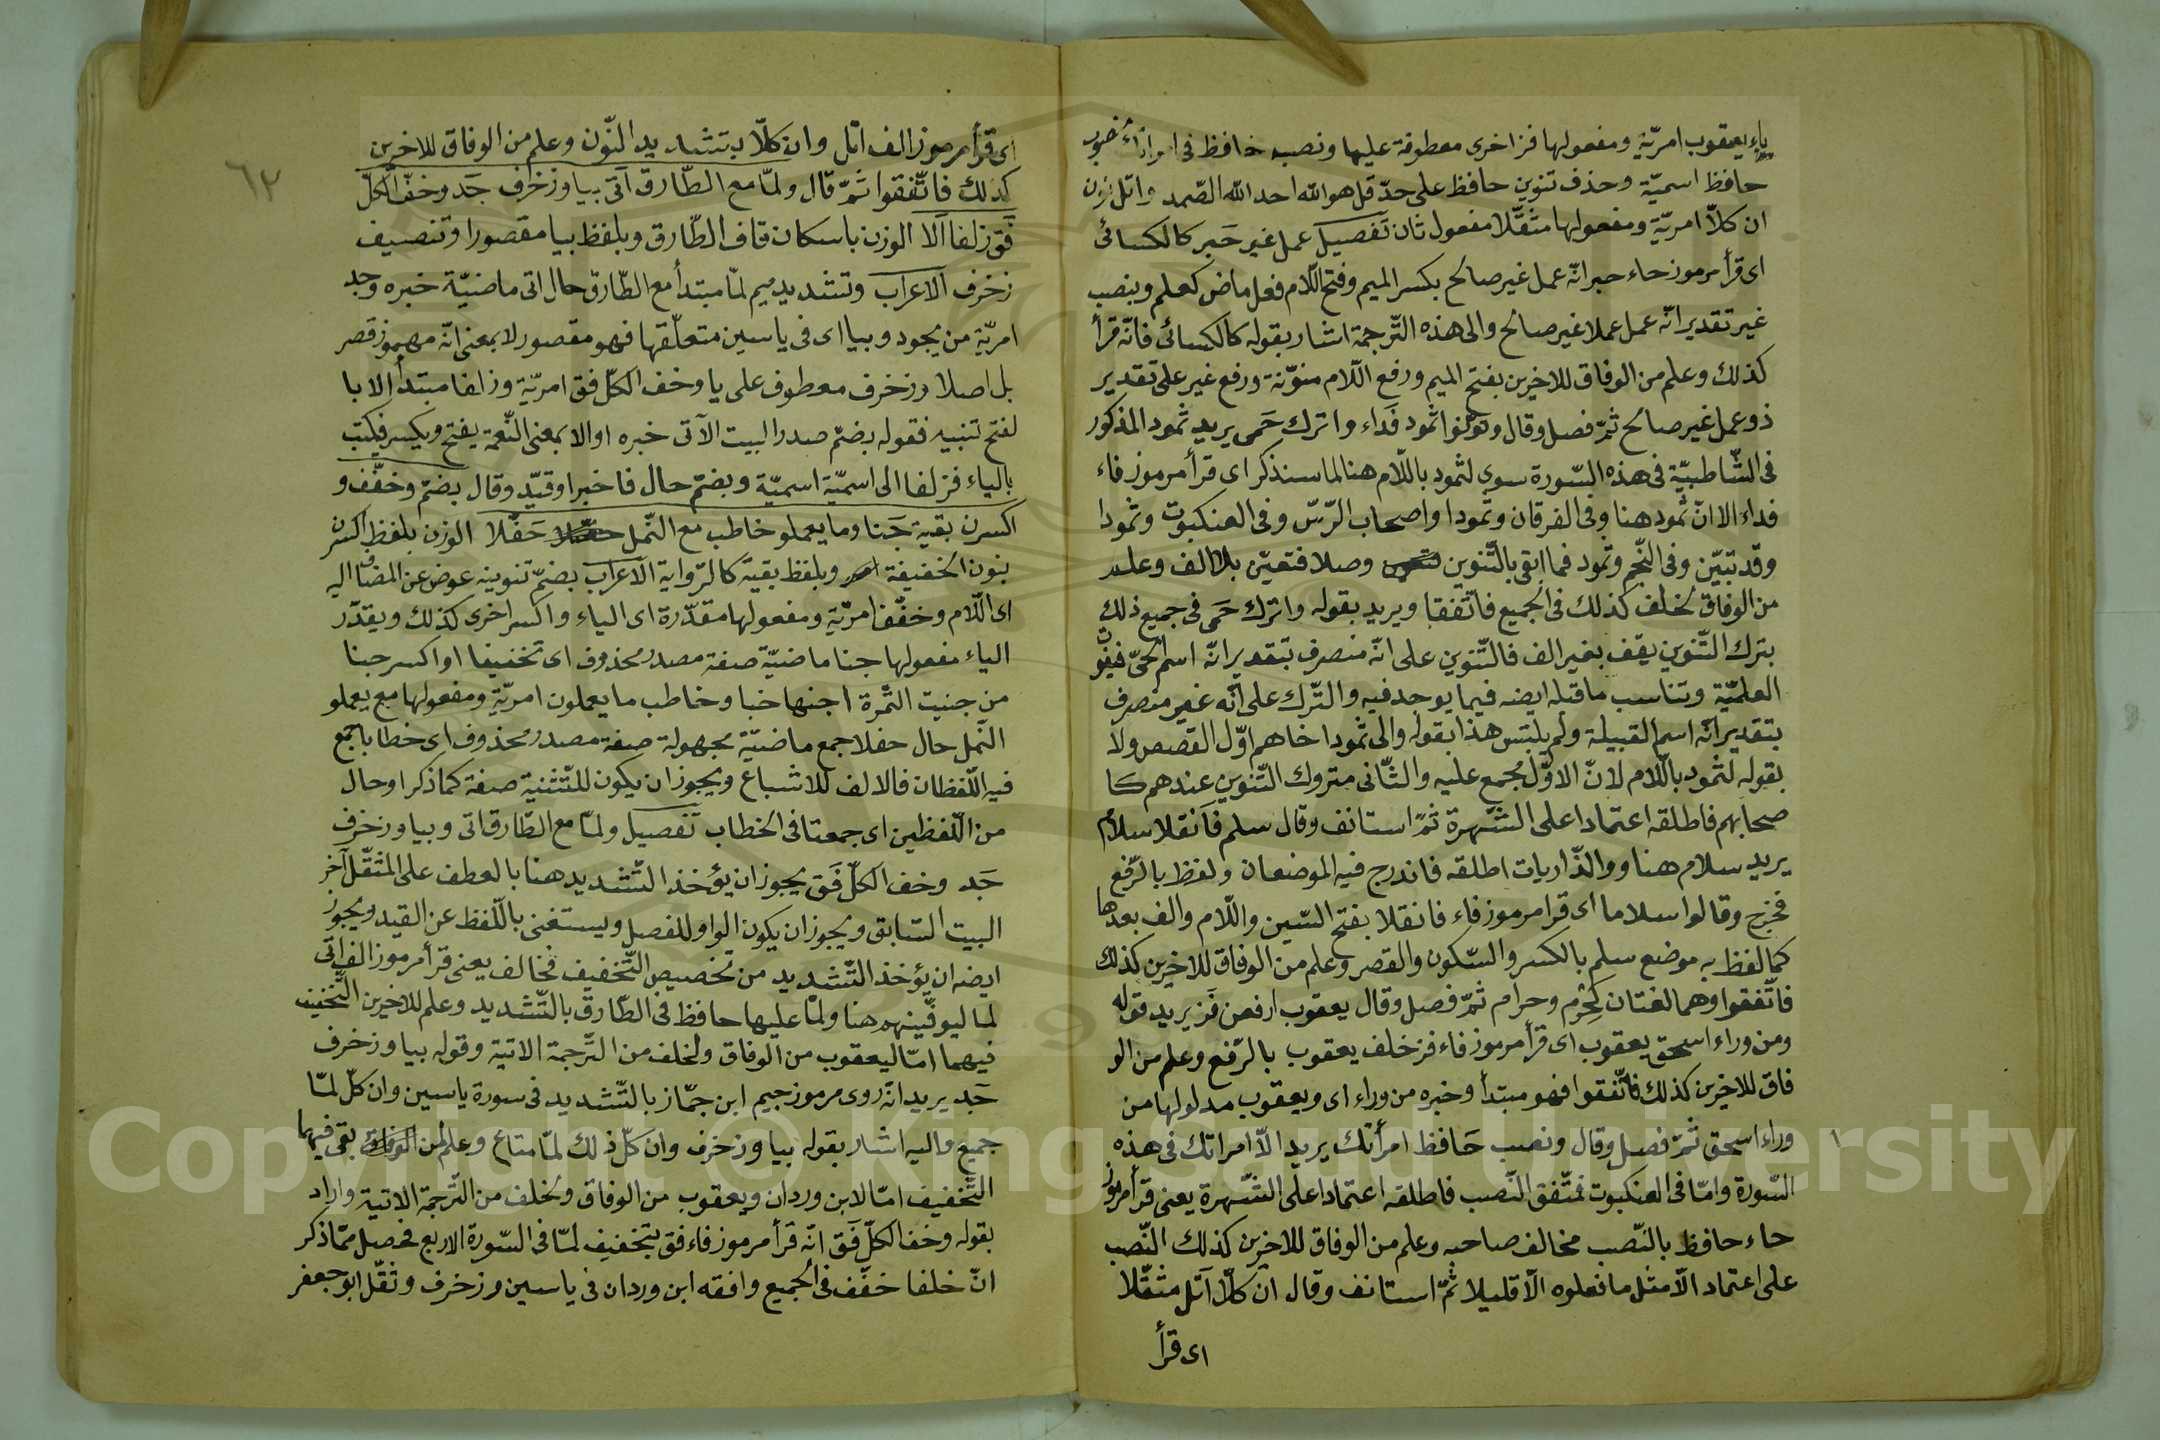 ياء يعقوب امريّة ومفعولها فز اخرى معطوفة عليها ونصب حافظ فى امراتك منصوب
حافظ اسميّة وحذف تنوين حافظ على حدّ قل هو الله احد الله الصّمد واتل نون
ان كلاّ امريّة ومفعولها مثقّلا مفعول ثان تفصيل عمل غير حَبر كالكسائى
اى قرأ مرموز حاء حبر انّه عمل غير صالح بكسر الميم وفتح اللّام فعل ماض كعلم وبنصب
غير تقدير انّه عمل عملا غير صالح والى هذه التّرجمة اشار بقوله كالكسائى فانّه قرأ
كذلك وعلم من الوفاق للاخرين بفتح الميم ورفع اللّام منوّنة ورفع غير على تقدير
ذو عمل غير صالح ثمّ فصل وقال ونوّنوا ثمود فَداء واترك حَمى يريد ثمود المذكور
فى الشّاطبيّة فى هذه السّورة سوى لثمود باللّام هنا لما سنذكر اى قرأ مرموز فاء
فداء الا انّ ثمود هنا وفى الفرقان وثمودا واصحاب الرّسّ وفى العنكبوت وثمودا
وقد تبيّن وفى النّجم وثمود فما ابقى بالتّنوين وصلا فتعيّن بلا الف وعلم
من الوفاق لخلف كذلك فى الجميع فاتّفقا ويريد بقوله واترك حَمى فى جميع ذلك
بترك التّنوين يقف بغير الف فالتّنوين على انّه منصرف بتقدير انّه اسم الحىّ ففوت
العلميّة وتناسب ما قبله ايضه فيما يوجد فيه والتّرك على انّه غير منصرف
بتقدير انّه اسم القبيلة ولم يلبّس هذا بقوله والى ثمود اخاهم اوّل القصص ولا
بقوله لثمود باللّام لانّ الاوّل مجمع عليه والثّانى متروك التّنوين عندهم كا
صحابهم فاطلقه اعتمادا على الشّهرة ثمّ استانف وقال سلم فَانقلا سلام
يريد سلام هنا ووالذّاريات اطلقه فاندرج فيه الموضعان ولفظ بالرّفع
فخرج وقالوا سلاما اى قرا مرموز فاء فانقلا بفتح السّين واللّام والف بعدها
كما لفظ به موضع سلم بالكسر والسّكون والقصر وعلم من الوفاق للاخرين كذلك
فاتّفقوا وهما لغتان كحِرْم وحرام ثمّ فصل وقال يعقوب ارفعن فَز يريد قوله
ومن وراء اسحق يعقوب اى قرأ مرموز فاء فز خلف يعقوب بالرّفع وعلم من الو
فاق للاخرين كذلك فاتّفقوا فهو مبتدأ وخبره من وراء اى ويعقوب مدلولها من
وراء اسحق ثمّ فصل وقال ونصب حَافظ امرأتك يريد الاّ امراتك فى هذه
السّورة وامّا فى العنكبوت فمتّفق النّصب فاطلقه اعتمادا على الشّهرة يعنى قرأ مرموز
حاء حافظ بالنّصب مخالف صاحبه وعلم من الوفاق للاخرين كذلك النّصب
على اعتماد الاّ مثل ما فعلوه الاّ قليلا ثمّ استانف وقال ان كلاّ اَتل مثقّلا
اى قرأ
٦٢
اى قرأ مرموز الف اتل وان كلاّ بتشديد النّون وعلم من الوفاق للاخرين
كذلك فاتّفقوا ثمّ قال ولمّا مع الطّارق آتى بيا وزخرف جَد وخفّ الكلّ
فَق زلفا الا الوزن باسكان قاف الطّارق وبلفظ بيا مقصورا وتنصيف
زخرف الاعراب وتشديد ميم لمّا مبتدأ مع الطّارق حال اتى ماضيّة خبره وجد
امريّة من يجود وبيا اى فى ياسين متعلّقها فهو مقصور لا بمعنى انّه مهموز قصر
بل اصلا وزخرف معطوف على يا وخف الكلّ فق امريّة وزلفا مبتدأ الا با
لفتح تنبيه فقوله بضمّ صدر البيت الآتى خبره او الا بمعنى النّعمة يفتح ويكسر فيكتب
بالياء فزلفا الى اسميّة اسميّة وبضمّ حال فاخبرا وقيّد وقال بضمّ وخفّف و
اكسرن بقية جَنا وما يعملو خاطب مع النّمل حَفّلا الوزن بلفظ اكسرن
بنون الخفيفة وبلفظ بقية كالرّواية الاعراب بضمّ تنوينه عوض عن المضاف اليه
اى اللّام وخفّفا امريّة ومفعولها مقدّرة اى الياء واكسر اخرى كذلك ويقدّر
الياء مفعولها جنا ماضيّة صفة مصدر محذوف اى تخفيفا او اكسر جنا
من جنيت الثّمرة اجنها خبا وخاطب ما يعملون امريّة ومفعولها مع يعملو
النّمل حال حفلا جمع ماضيّة مجهولة صفة مصدر محذوف اى خطابا جمع
فيه اللّفظان فالالف للاشباع ويجوز ان يكون للتّثنية صفة كما ذكر او حال
من اللّفظين اى جمعتا فى الخطاب تفصيل ولمّا مع الطّارق اتى وبيا وزخرف
جَد وخف الكلّ فَق يجوز ان يؤخذ التّشديد هنا بالعطف على المثقّل آخر
البيت السّابق ويجوز ان يكون الواو للفصل ويستغنى باللّفظ عن القيد ويجوز
ايضه ان يؤخذ التّشديد من تخصيص التّخفيف فخالف يعنى قرأ مرموز الف اتى
لما ليوفّينهم هنا ولمّا عليها حافظ فى الطّارق بالتّشديد وعلم للاخرين التّخفيف
فيهما امّا ليعقوب من الوفاق ولخلف من التّرجمة الاتية وقوله بيا وزخرف
جَد يريد انّه روى مرموز جيم ابن جمّاز بالتّشديد فى سورة ياسين وان كلّ لمّا
جميع واليه اشار بقوله بيا وزخرف وان كلّ ذلك لمّا متاع وعلم لمن بقى فيهما
التّخفيف امّا لابن وردان ويعقوب من الوفاق ولخلف من التّرجمة الاتية واراد
بقوله وخف الكلّ فَق انّه قرأ مرموز فاء فق بتخفيف لمّا فى السّورة الاربع فحصل ممّا ذكر
انّ خلفا خفّف فى الجميع وافقه ابن وردان فى ياسين وزخرف وثقّل ابو جعفر
Copyright © King Saud University